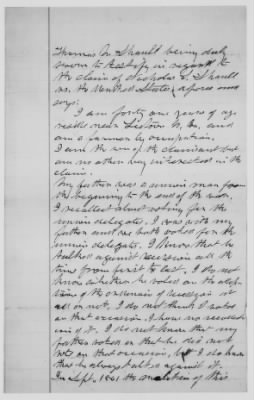 Thomas M. Shaull being duly
sworn to testify in regard to
the claim of Nicholas S. Shaull
vs. the United States, afores and
says:
I am forty one years of age
reside near W. Va. and
am a farmer by occupation,
I am the son of the claimant but
am no other way interested in the
claim.
My father was a union man from
the beginning to the end of the war.
I recollect about voting for the
union delegate. I was with my
father and we both voted for the
union delegate. I know that he
talked against secession all the
time from first to last. I do not
know whether he voted on the adop-
tion of the ordinance of secession at
all or not. I do not think I voted
on that occasion. I have no recollect-
ion of it. I do not know that my
father voted or that he did not
vote on that occasion, but I do know
that he always talked against it.
In Sept. 1861 the of this